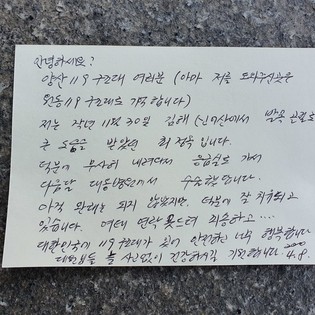 안녕하세요?
양산 119 구조대 여러분 (아마 저를 도와주신분은
원동 119 구조대로 기억합니다)
저는 작년 11월 30일 김해 (신어산에서 발목 골절로
큰 도움을 받았던 최 입니다.
덕분에 무사히 내려와서 응급실로 가서
다음달 대동병원에서 수술했습니다.
아직 완쾌는 되지 않았지만, 덕분에 잘 치유되고
있습니다. 여태 연락 못드려 죄송하고....
대한민국에 119 구조대가 있어 안전하고 너무 행복합니다
대원님들 늘 사고없이 건강하시길 기원합니다. 4.8.